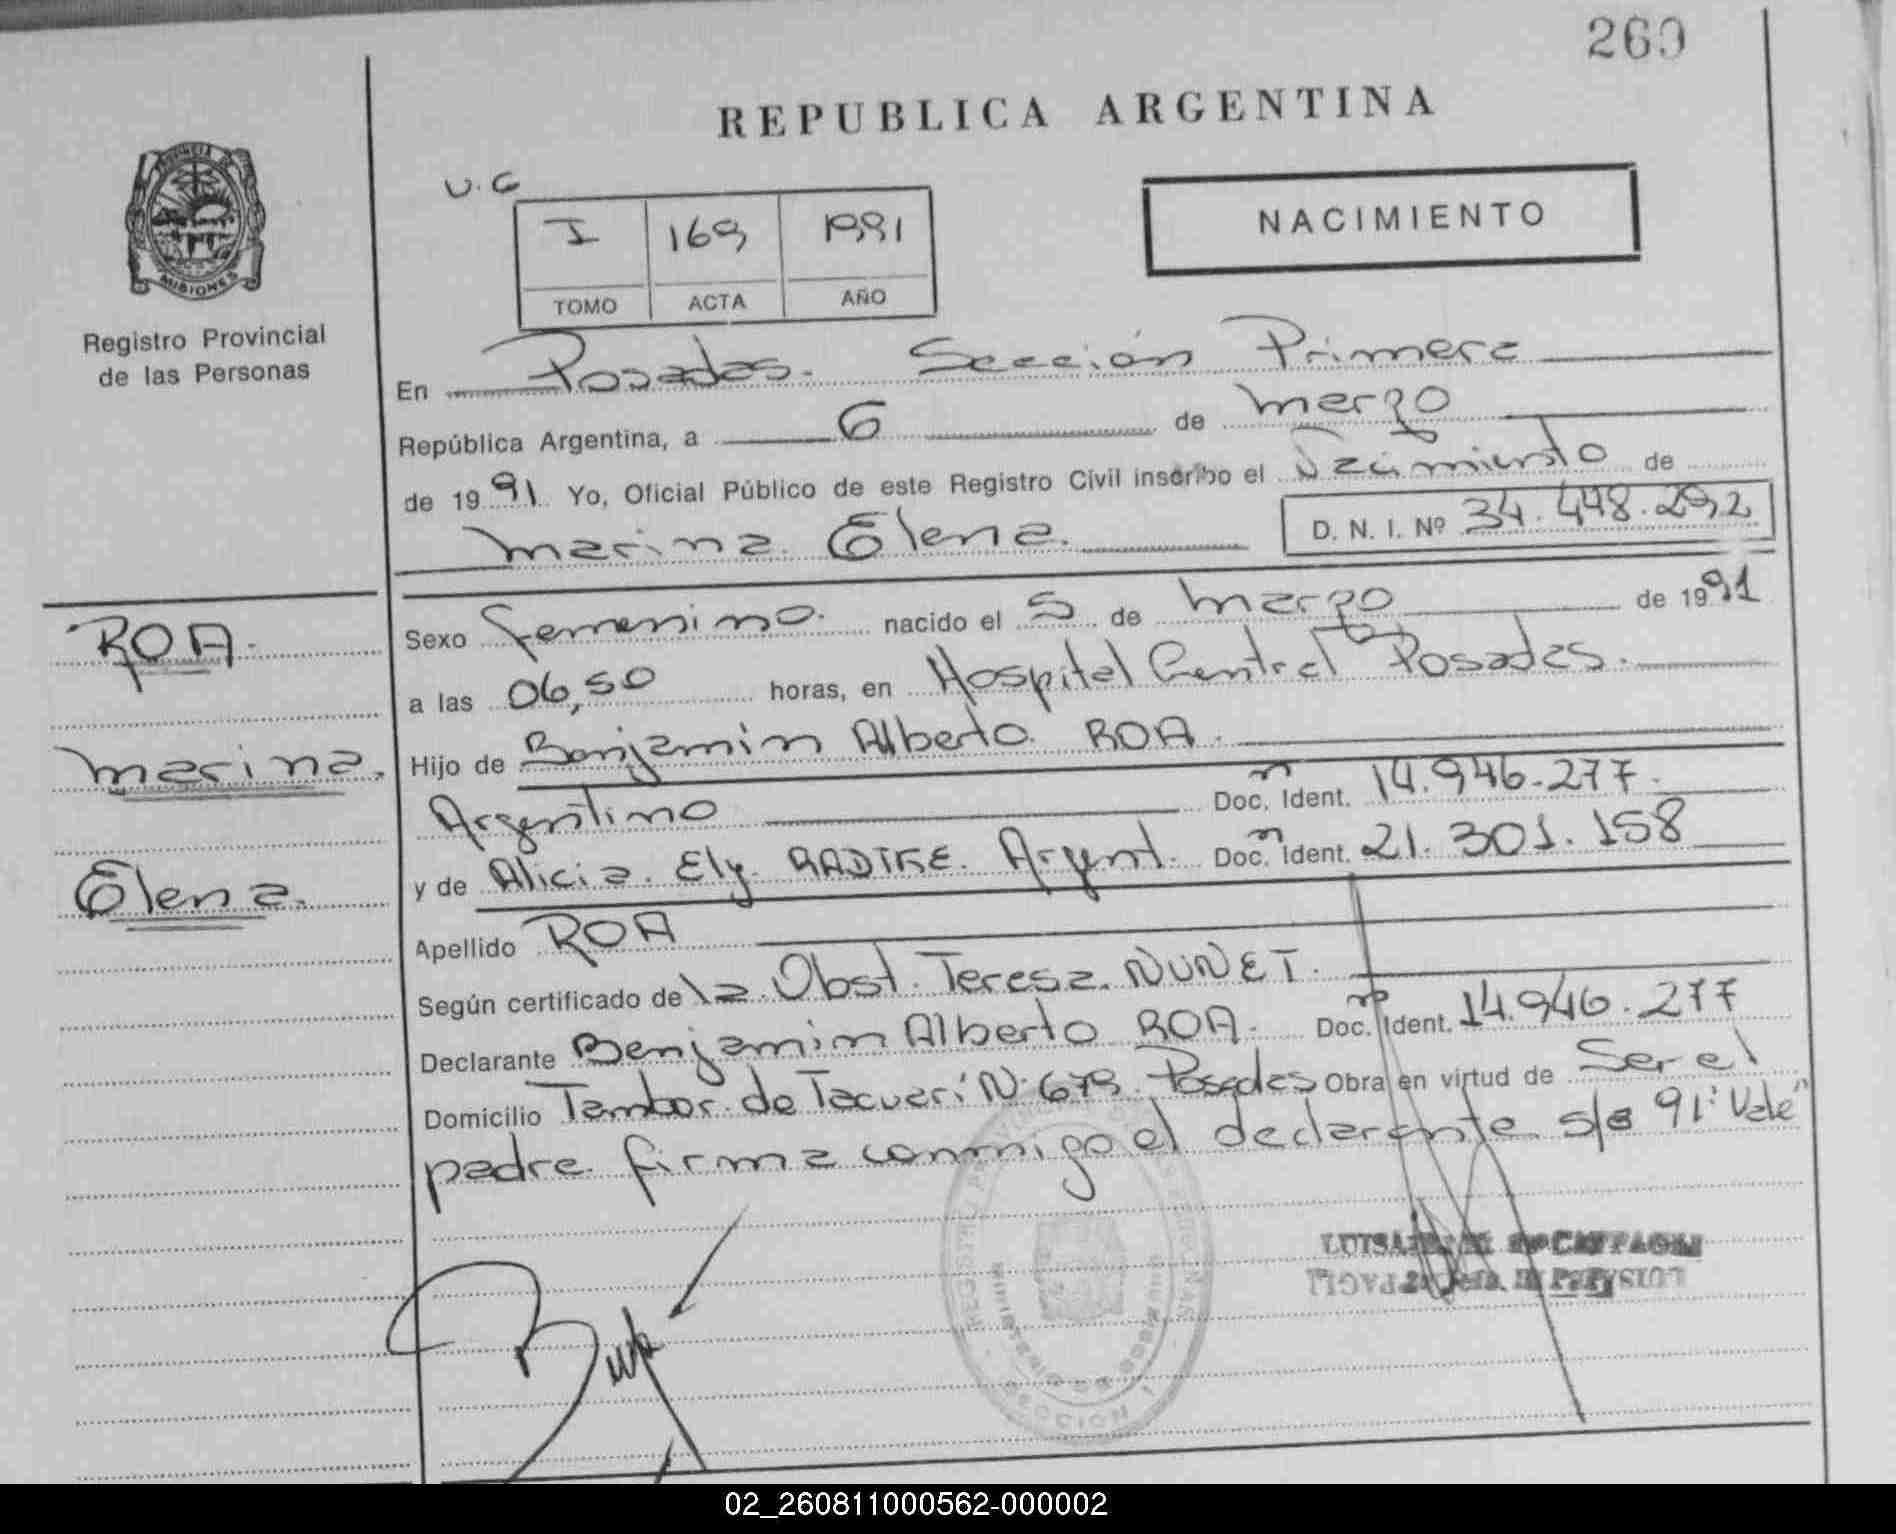 269
REPUBLICA ARGENTINA
PROVINCIA DE
MISIONES
Registro Provincial
de las Personas
U.G
I 169 1991
TOMO ACTA AÑO
NACIMIENTO
En Posadas. Sección Primera
República Argentina, a 6 de marzo
de 1991 Yo, Oficial Público de este Registro Civil inscribo el Nacimiento de
Marina Elena. D. N. I. Nº 34.448.292
ROA.
Marina.
Elena.
Sexo femenino. nacido el 5 de marzo de 1991
a las 06,50 horas, en Hospital Central Posadas.
Hijo de Benjamin Alberto ROA.
Argentino Doc. Ident. 14.946.277.
y de Alicia. Ely. RADTKE. Argent. Doc. Ident. 21.301.158
Apellido ROA
Según certificado de la Obst. Teresa. NUNEZ.
Declarante Benjamin Alberto ROA. Doc. Ident. 14.946.277
Domicilio Tambor de Tacuari N. 679 Posadas Obra en virtud de Ser el
padre. firma conmigo el declarante s/e 91 "Vale"
02_260811000562-000002